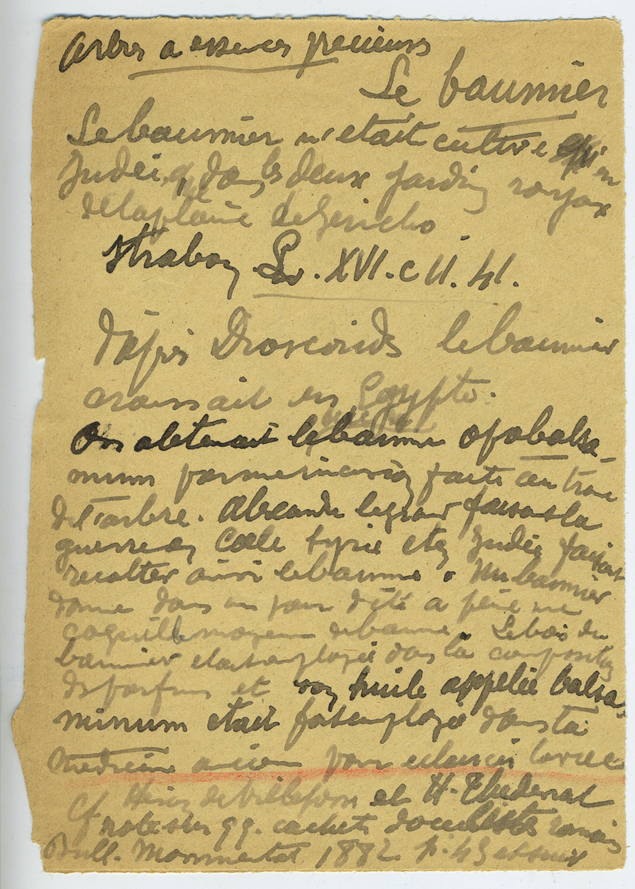 arbres a essences precieuses
Le baumier
Le baumier n'était cultivé qu'en
Judée, dans les deux jardins royaux
de la plaine de Jericho
Strabon Liv. XVI. c II. 41.
d'après Dioscoride le baumier
croissait en Egypte.
On obtenait le baume opobalsa-
mum par une incision faite au tronc
de l'arbre. Alexandre le grand faisant la
guerre en Coele Syrie et en Judée faisait
recolter ainsi le baume. Un baumier
donne dans un jour d'été a peine une
coquille moyenne de baume. Le bois du
baumier etait employé dans la composition
de parfums et son huile appelée balsa-
minum etait fort employée dans la
medecine
Cf Heron de Villefosse et H. Thedenat
notes sur qq. cachets d'oculistes romains
Bull. Monumental 1882 p.